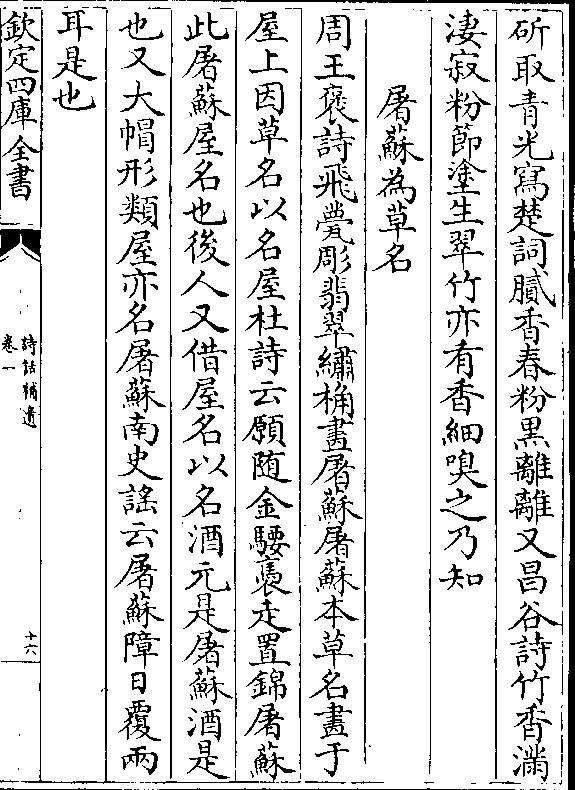 斫取青光寫楚詞膩香春粉黒離離又昌谷詩竹香滿
淒寂粉節塗生翠竹亦有香細嗅之乃知
屠蘇為草名
周王褒詩飛甍彫翡翠繡桷畫屠蘇屠蘇本草名畫于
屋上因草名以名屋杜詩云願随金騕褭走置錦屠蘇
此屠蘇屋名也後人又借屋名以名酒元是屠蘇酒是
也又大帽形類屋亦名屠蘇南史謡云屠蘇障日覆兩
耳是也
欽定四庫全書
詩話補遺
卷一
十六